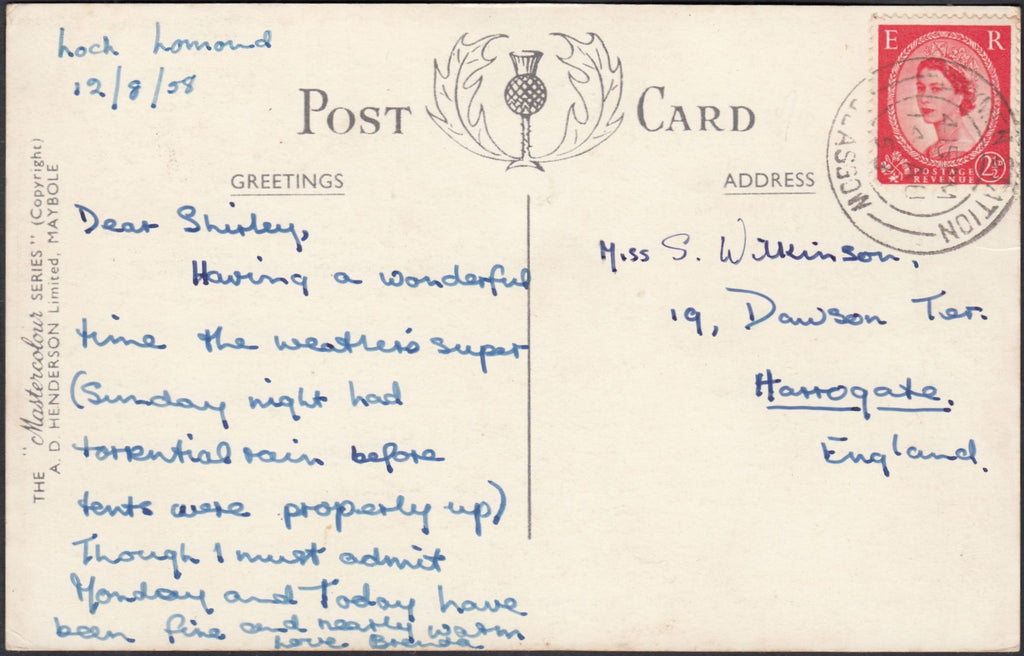 Loch Lomond
12/8/58
POST CARD
GREETINGS
Dear Shirley,
Having a wonderful
time the weather's super
(Sunday night had
torrential rain before
tents were properly up)
Though I must admit
Monday and Today have
been fine and nearly warm
Love Brenda
ADDRESS
Miss S. Wilkinson,
19, Dawson Ter.
Harrogate.
England.
E R
POSTAGE
REVENUE
2½D
GLASGOW
STATION
THE "Mastercolour SERIES" (Copyright)
A. D. HENDERSON Limited, MAYBOLE